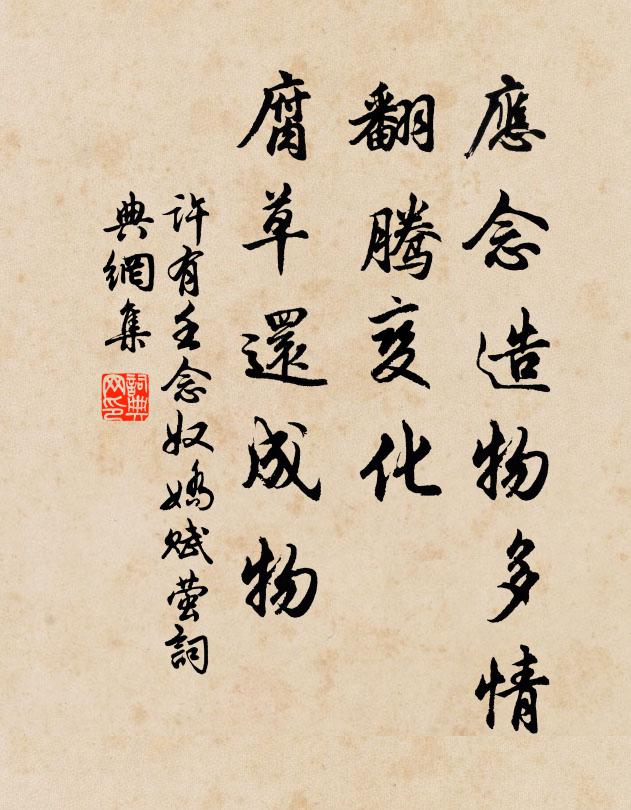 應念造物多情
翻騰变化
腐草還成物
許有壬念奴嬌賦萤詞
典網集
詞典网印